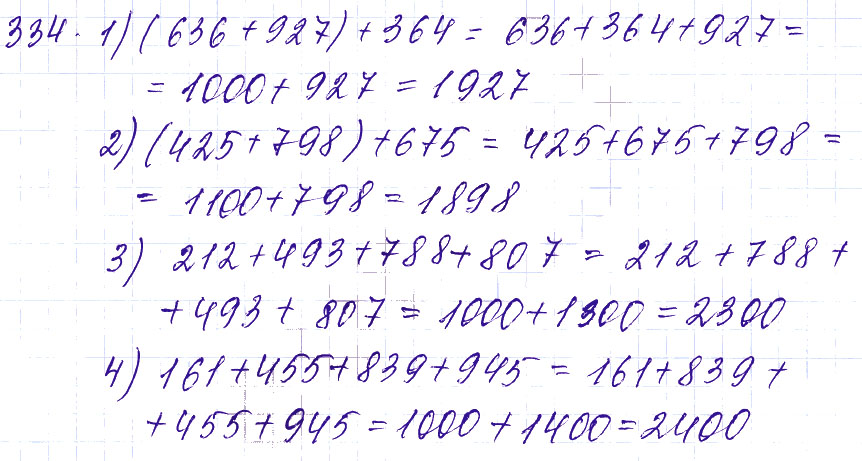 334. 1) (636 + 927) + 364 = 636 + 364 + 927 =
= 1000 + 927 = 1927
2) (425 + 798) + 675 = 425 + 675 + 798 =
= 1100 + 798 = 1898
3) 212 + 493 + 788 + 807 = 212 + 788 +
+ 493 + 807 = 1000 + 1300 = 2300
4) 161 + 455 + 839 + 945 = 161 + 839 +
+ 455 + 945 = 1000 + 1400 = 2400